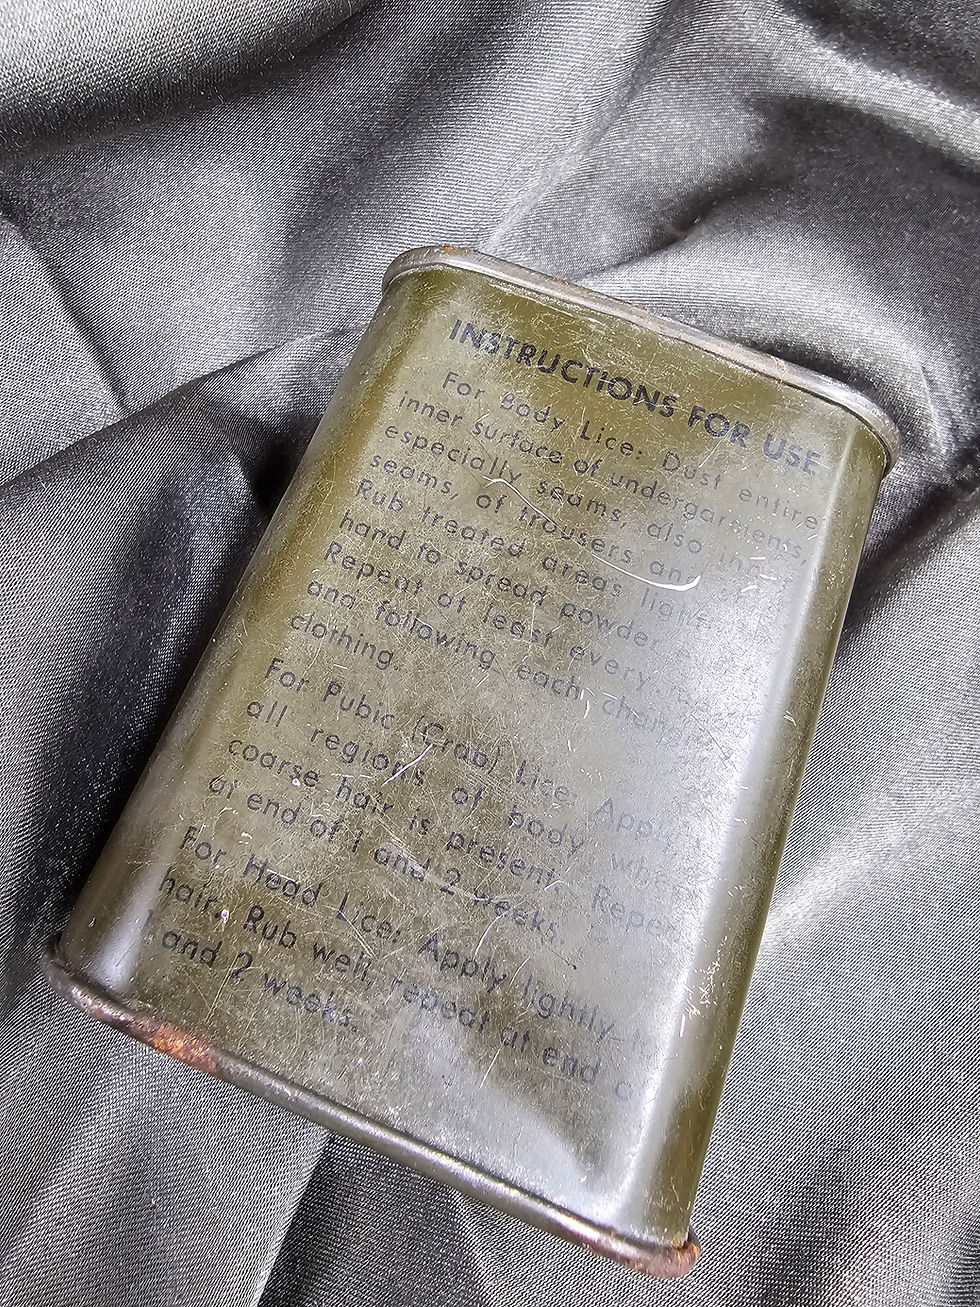 INSTRUCTIONS FOR USE
For Body Lice: Dust entire
inner surface of undergarments,
especially seams, also
seams, of trousers
Rub treated areas
hand to spread powder
Repeat at least every
and following each
clothing.
For Pubic (Crab) Lice: Apply
all regions of body where
coarse hair is present. Repeat
at end of 1 and 2 weeks.
For Head Lice: Apply lightly
hair. Rub well, repeat at end
1 and 2 weeks.